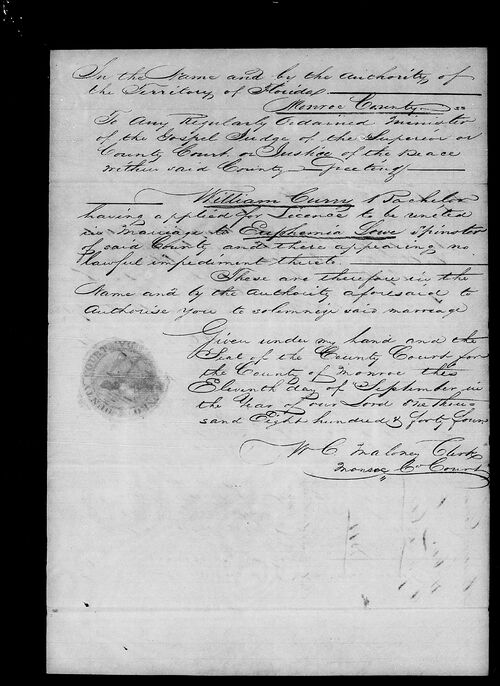 In the Name and by the authority of
the Territory of Florida
Monroe County
To Any Regularly Ordained Minister
of the Gospel Judge of the Superior or
County Court or Justice of the Peace
within said County Greeting
William Curry A Bachelor
having applied for Licence to be united
in marriage to Euphemia Lowe Spinster
of said County and there appearing no
lawful impediment thereto.
These are therefore in the
Name and by the authority aforesaid to
authorise you to solemnize said marriage
Given under my hand and the
Seal of the County Court for
the County of Monroe this
Eleventh day of September in
the Year of our Lord One thou
sand Eight hundred & forty four
W C Maloney Clerk
Monroe Co Court